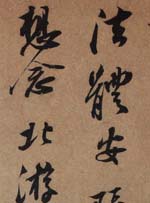 法體安
想念北游